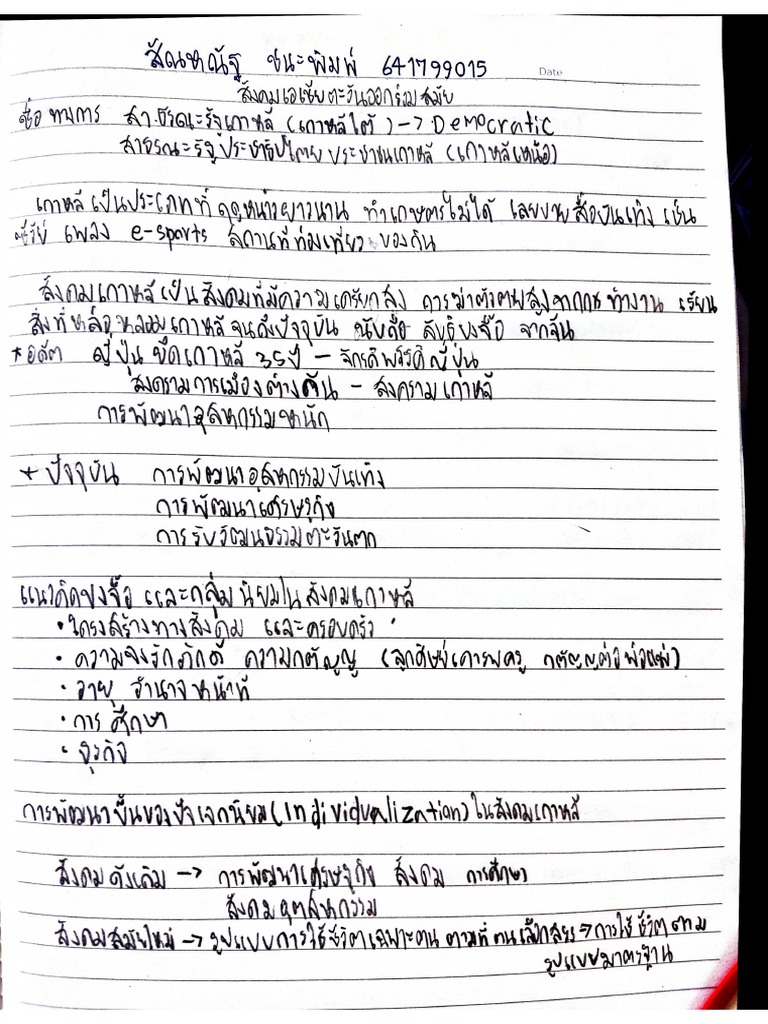 สัณหณัฐ ชนะพิมพ์ 641799015 Date
สังคมเอเชียตะวันออกร่วมสมัย
ชื่อทางการ สาธารณะรัฐเกาหลี (เกาหลีใต้) -> Democratic
สาธารณะรัฐประชาธิปไตยประชาชนเกาหลี (เกาหลีเหนือ)
เกาหลีเป็นประเภทที่ฤดูหนาวยาวนาน ทำเกษตรไม่ได้ เลยขายสื่อบันเทิง เช่น
ซีรีย์ เพลง e-sports สถานที่ท่องเที่ยว ของกิน
สังคมเกาหลีเป็นสังคมที่มีความเครียดสูง การฆ่าตัวตายสูงจากการทำงาน เรียน
สิ่งที่หล่อหลอมเกาหลีจนถึงปัจจุบัน นับถือ ลัทธิขงจื้อ จากจีน
* อดีต ญี่ปุ่นยึดเกาหลี 35 ปี - จักรดิพรรดิญี่ปุ่น
สงครามการเมืองต่างคัน - สงครามเกาหลี
การพัฒนาอุสหกรรมหนัก
* ปัจจุบัน การพัฒนาอุสหกรรมบันเทิง
การพัฒนาเศรษฐกิจ
การรับวัฒนธรรมตะวันตก
แนวคิดขงจื้อ และกลุ่มนิยมในสังคมเกาหลี
• โครงสร้างทางสังคม และครอบครัว
• ความจงรักภักดี ความกตัญญู (ลูกศิษย์เคารพครู กตัญญูต่อพ่อแม่)
• อายุ อำนาจหน้าที่
• การศึกษา
• ธุรกิจ
การพัฒนาขึ้นของปัจเจกนิยม (Individualization) ในสังคมเกาหลี
สังคมดั่งเดิม -> การพัฒนาเศรษฐกิจ สังคม การศึกษา
สังคมอุตสหกรรม
สังคมสมัยใหม่ -> รูปแบบการใช้ชีวิตเฉพาะตน ตามที่ตนเลือกสรร -> การใช้ชีวิตตาม
รูปแบบมาตรฐาน